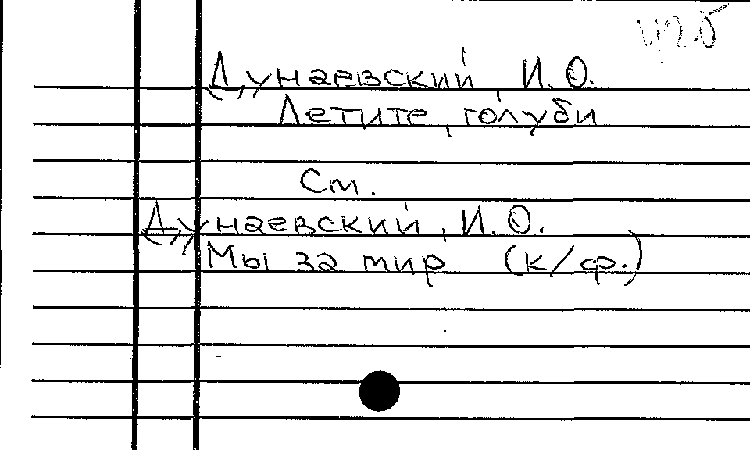 Дунаевский, И. О.
Летите, голуби
См.
Дунаевский, И. О.
Мы за мир (к/ф.)